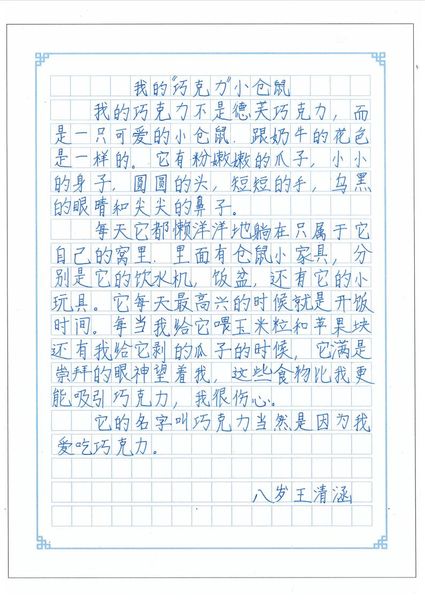 我的“巧克力”小仓鼠
我的巧克力不是德芙巧克力，而
是一只可爱的小仓鼠．跟奶牛的花色
是一样的。它有粉嫩嫩的爪子，小小
的身子，圆圆的头，短短的手，乌黑
的眼睛和尖尖的鼻子。
每天它都懒洋洋地躺在只属于它
自己的窝里．里面有仓鼠小家具，分
别是它的饮水机，饭盆，还有它的小
玩具。它每天最高兴的时候就是开饭
时间。每当我给它喂玉米粒和苹果块
还有我给它剥的瓜子的时候，它满是
崇拜的眼神望着我，这些食物比我更
能吸引巧克力，我很伤心。
它的名字叫巧克力当然是因为我
爱吃巧克力。
八岁王清涵